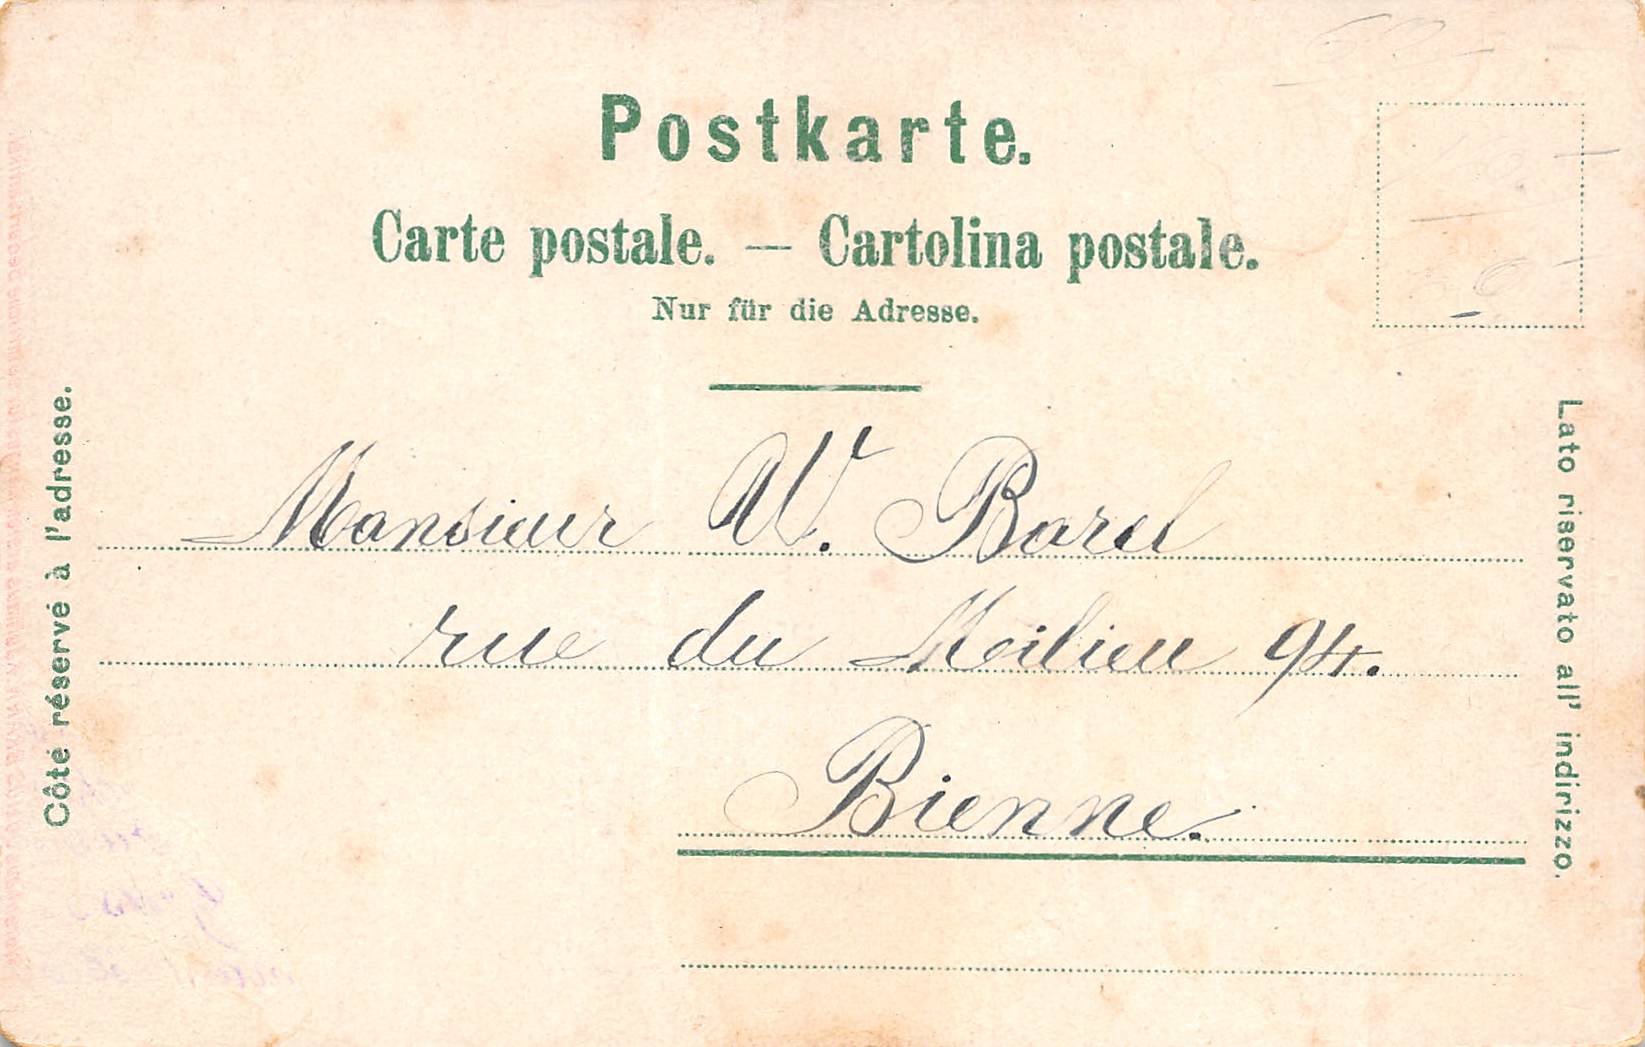 Postkarte.
Carte postale. — Cartolina postale.
Nur für die Adresse.
Côté réservé à l'adresse.
Monsieur W. Borel
rue du Milieu 94.
Bienne.
Lato riservato all' indirizzo.